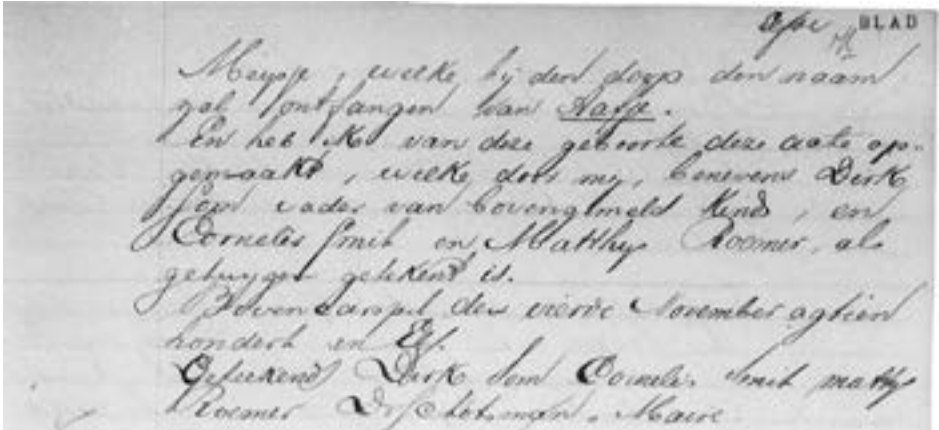 BLAD
Meysje, welke bij den doop den naam
zal ontfangen van Aafje.
En heb ik van deze geboorte deze acte op-
gemaakt, welke door mij, benevens Dirk
vader van bovengemeld Kind, en
Cornelis Smit en Matthijs Roemer, als
getuygen getekend is.
Bovencarspel den vierde November agtien
hondert en Elf.
Getekend Dirk Cornelis Smit matthys
Roemer Maire